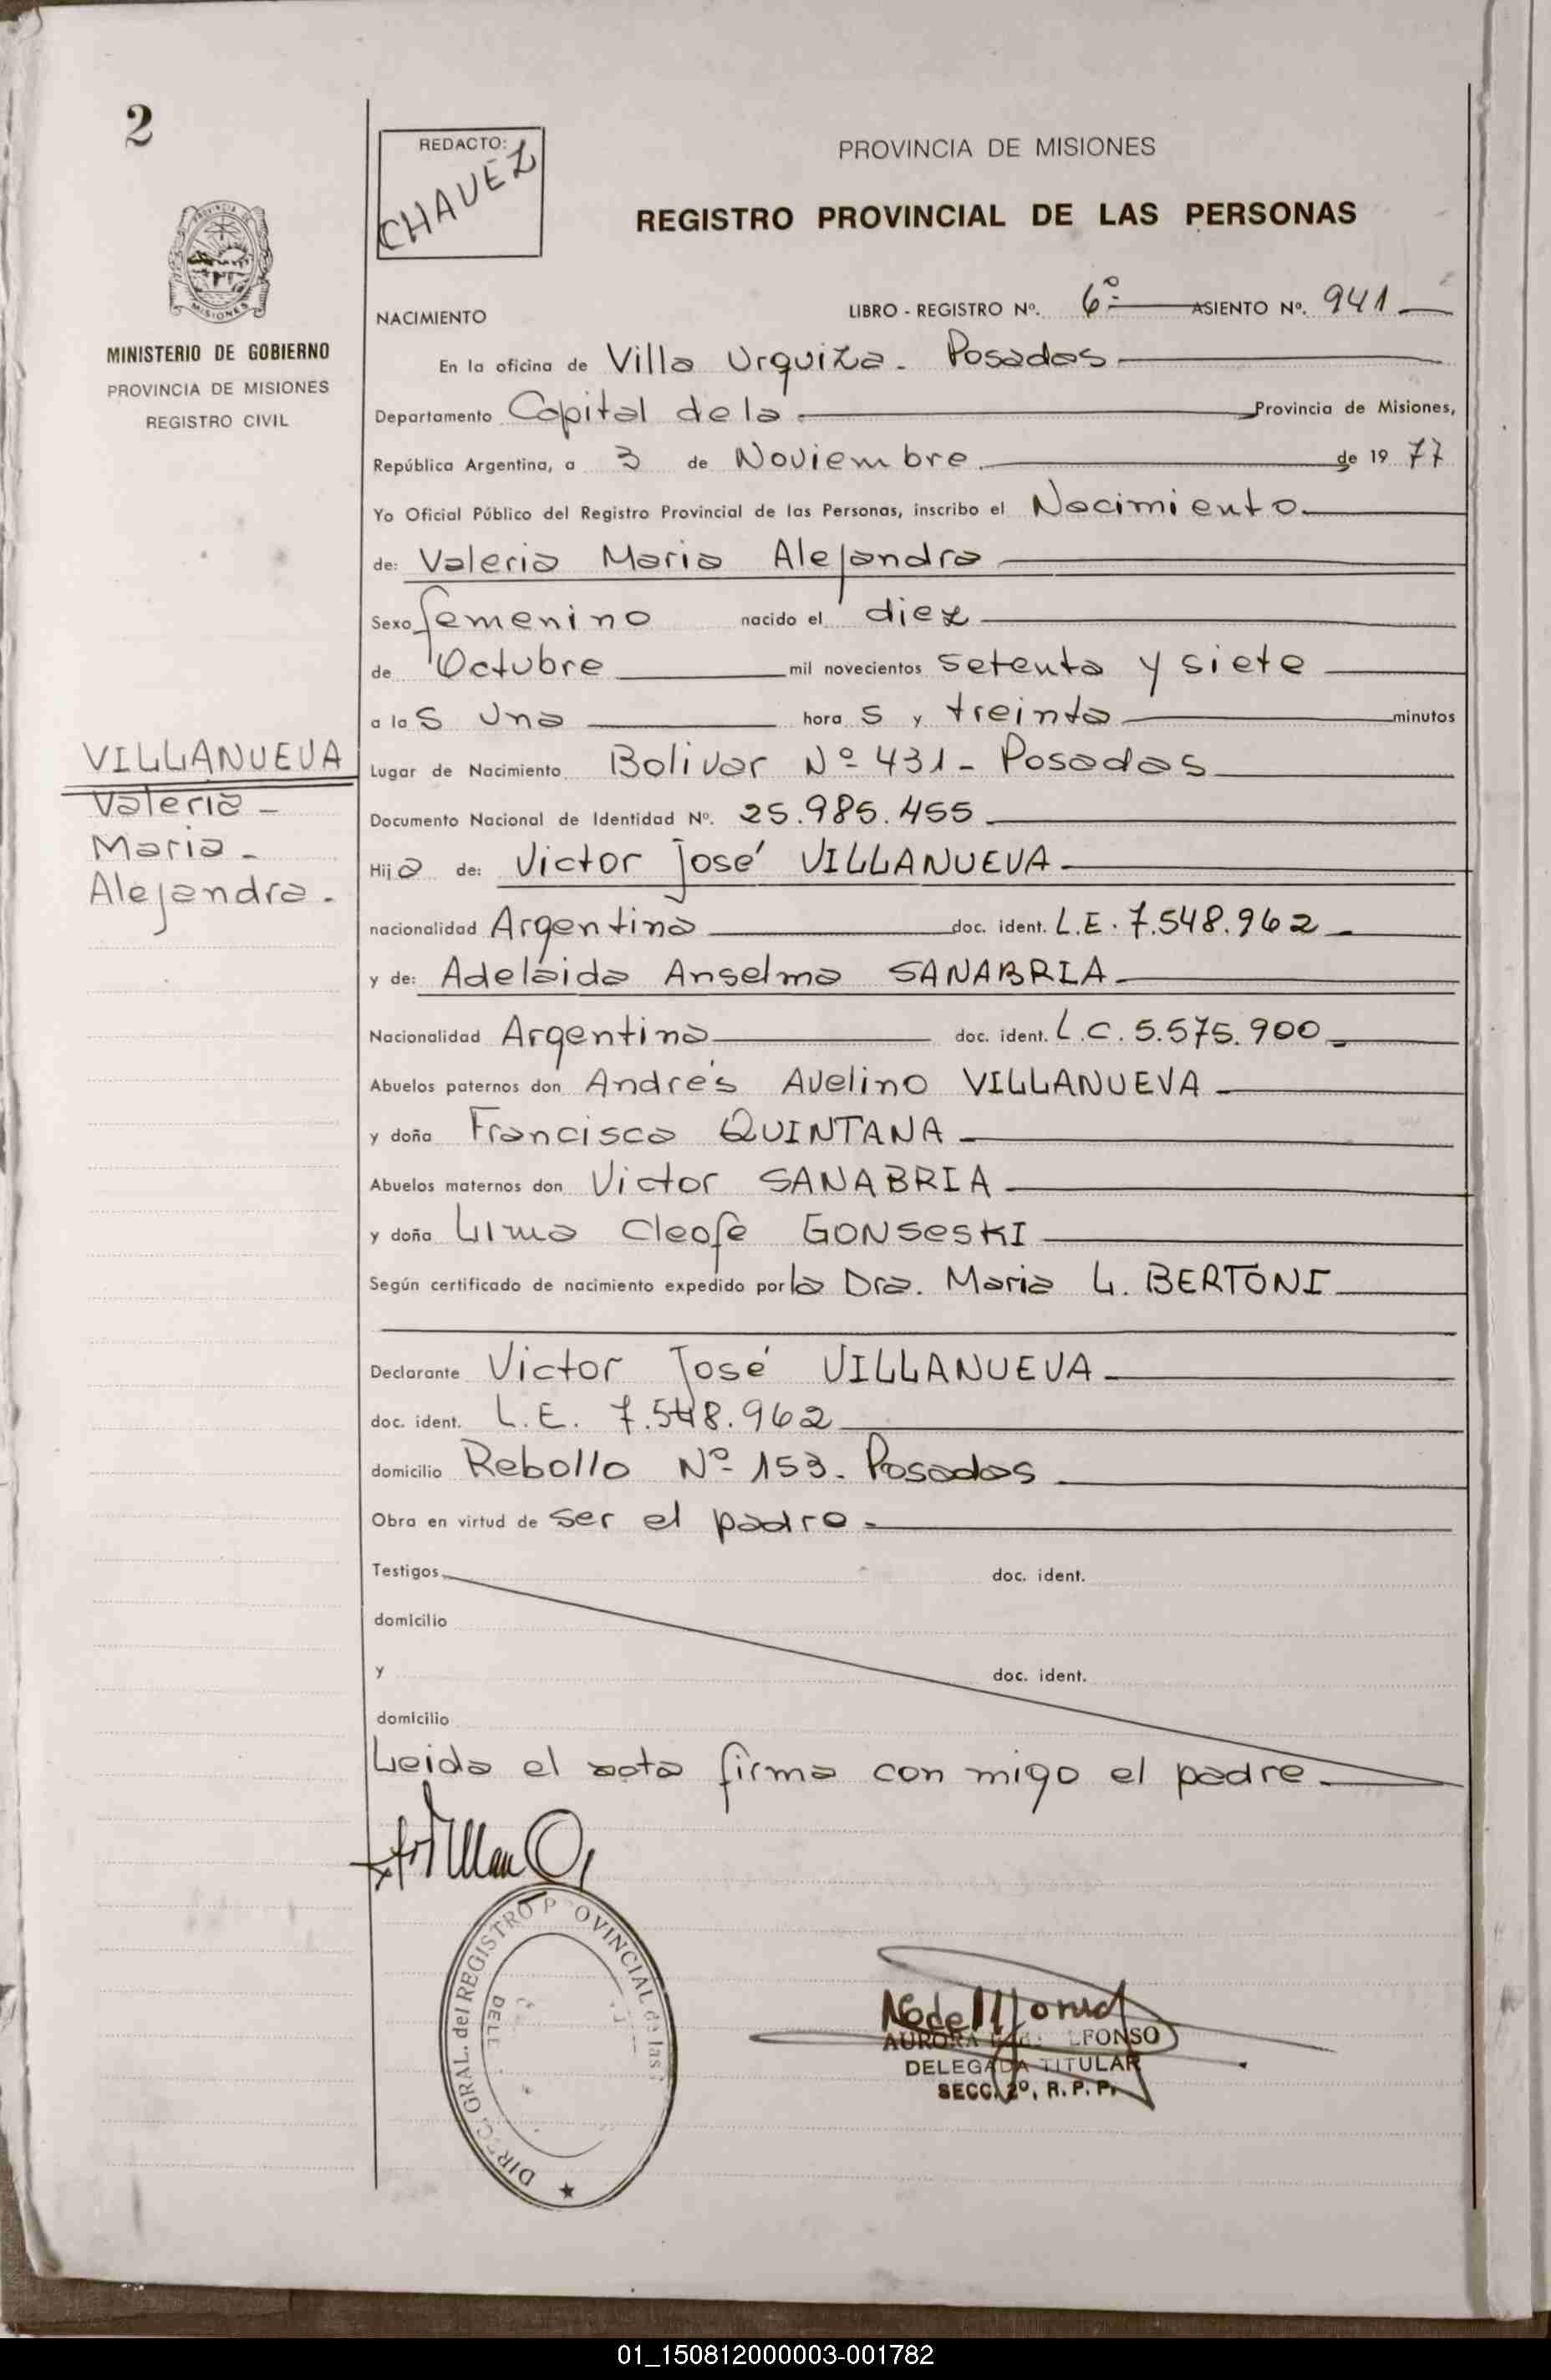 2
REDACTO:
CHAVEZ
PROVINCIA DE MISIONES
REGISTRO PROVINCIAL DE LAS PERSONAS
MISIONES
MINISTERIO DE GOBIERNO
PROVINCIA DE MISIONES
REGISTRO CIVIL
NACIMIENTO LIBRO - REGISTRO Nº. 6º ASIENTO Nº. 941
En la oficina de Villa Urquiza - Posadas
Departamento Capital de la Provincia de Misiones,
República Argentina, a 3 de Noviembre de 19 77
Yo Oficial Público del Registro Provincial de las Personas, inscribo el Nacimiento
de: Valeria Maria Alejandra
Sexo femenino nacido el diez
de Octubre mil novecientos setenta y siete
a las una horas y treinta minutos
VILLANUEVA
Valeria -
Maria -
Alejandra -
Lugar de Nacimiento Bolivar Nº 431 - Posadas
Documento Nacional de Identidad Nº. 25.985.455
Hija de: Victor José VILLANUEVA
nacionalidad Argentina doc. ident. L.E. 7.548.962
y de: Adelaida Anselma SANABRIA
Nacionalidad Argentina doc. ident. L.C. 5.575.900
Abuelos paternos don Andrés Avelino VILLANUEVA
y doña Francisca QUINTANA
Abuelos maternos don Victor SANABRIA
y doña Lima Cleofe GONSESKI
Según certificado de nacimiento expedido por la Dra. Maria L. BERTONI
Declarante Victor José VILLANUEVA
doc. ident. L.E. 7.548.962
domicilio Rebollo Nº 153 - Posadas
Obra en virtud de ser el padre
Testigos doc. ident.
domicilio
y doc. ident.
domicilio
Leida el acta firma con migo el padre
DIREC. GRAL. del REGISTRO PROVINCIAL de las
AURORA LFONSO
DELEGADA TITULAR
SECC. 2º, R. P. P.
01_150812000003-001782